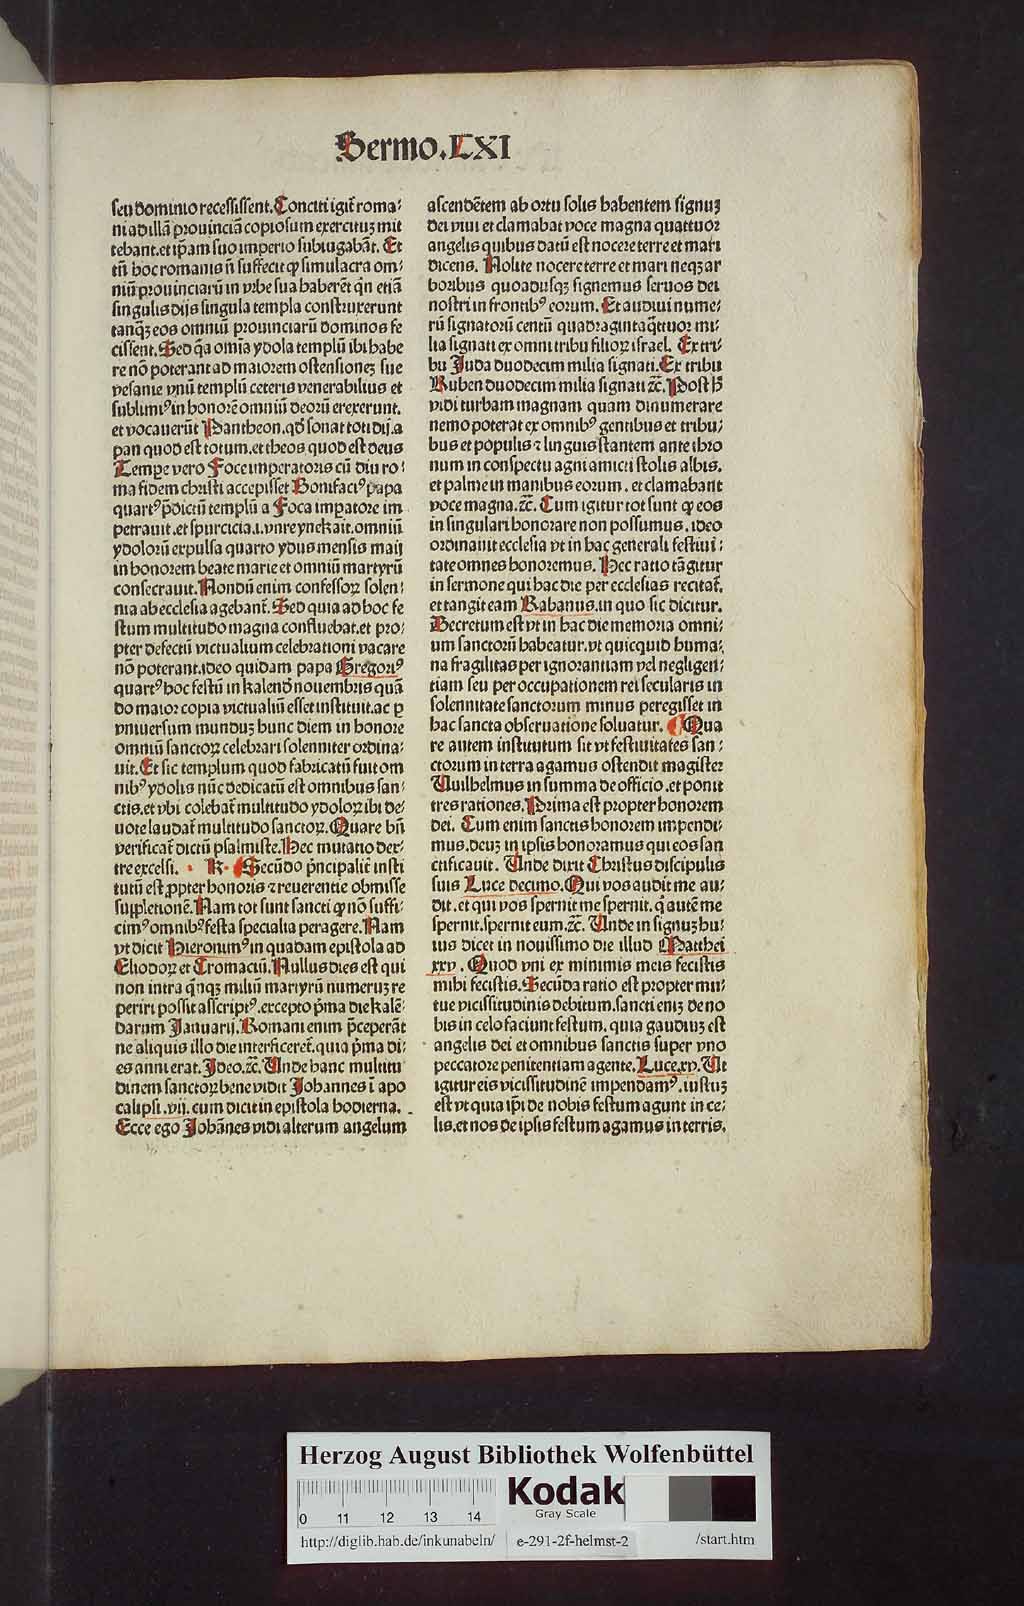 Sermo.LXI
seu dominio recessissent. Conciti igit̃ roma⸗
ni ad illã prouinciã copiosum exercitũ mit
tebant. et ip̃am suo imperio subiugabãt. Et
tñ hoc romanis ñ suffecit ꝙ simulacra om⸗
niũ prouinciarũ in vrbe sua haberẽt qͥn etiã
singulis dijs singula templa construxerunt
tanqꝫ eos omniũ prouinciarũ dominos fe
cissent. Sed qͣ om̃ia ydola templũ ibi habe
re nõ poterant ad maiorem ostensionem sue
vesanie vnũ templũ ceteris venerabilius et
sublimiꝰ in honorẽ omniũ deorũ erexerunt.
et vocauerũt Pantheon. qď sonat toti dij. a
pan quod est totum. et theos quod est deus
Tempe vero Foce imperatoris cũ diu ro⸗
ma fidem christi accepisset Bonifaciꝰ papa
quartꝰ p̃dictũ templũ a Foca imꝑatore im
petrauit. et spurcicia .i. vnreynekait. omniũ
ydolorũ expulsa quarto ydus mensis maij
in honorem beate marie et omniũ martyrũ
consecrauit. Nondũ enim confessoꝝ solen⸗
nia ab ecclesia agebant̃. Sed quia ad hoc fe
stum multitudo magna confluebat. et pro⸗
pter defectũ victualium celebrationi vacare
nõ poterant. ideo quidam papa Gregoriꝰ
quartꝰ hoc festũ in kalenď nouembris quã
do maior copia victualiũ esset instituit. ac ꝑ
vniuersum mundũ hunc diem in honore
omniũ sanctoꝝ celebrari solenniter ordina⸗
uit. Et sic templum quod fabricatũ fuit om
nibꝰ ydolis nũc dedicatũ est omnibus san⸗
ctis. et vbi colebat̃ multitudo ydoloꝝ ibi de⸗
uote laudat̃ multitudo sanctoꝝ. Quare bñ
verificat̃ dictũ psalmiste. Hec mutatio der⸗
tre excelsi. K. Secũdo p̃ncipalit̃ insti
tutũ est ꝓpter honoris ⁊ reuerentie obmisse
suppletionẽ. Nam tot sunt sancti ꝙ nõ suffi⸗
cimꝰ omnibꝰ festa specialia peragere. Nam
vt dicit Hieronimꝰ in quadam epistola ad
Eliodoꝝ et Cromaciũ. Nullus dies est qui
non intra qͥnqꝫ miliũ martyrũ numerũ re
periri possit asscriptꝰ. excepto p̃ma die kalẽ⸗
darum Januarij. Romani enim p̃ceperãt
ne aliquis illo die interficeret̃. quia p̃ma di⸗
es anni erat. Ideo. ⁊c̃. Vnde hanc multitu
dinem sanctoꝝ bene vidit Johannes ĩ apo
calipsi .vij. cum dicit in epistola hodierna.
Ecce ego Johãnes vidi alterum angelum
ascendẽtem ab ortu solis habentem signuꝫ
dei viui et clamabat voce magna quattuor
angelis quibus datũ est nocere terre et mari
dicens. Nolite nocere terre et mari neqꝫ ar
boribus quoadusqꝫ signemus seruos dei
nostri in frontibꝰ eorum. Et audiui nume⸗
rũ signatorũ centũ quadraginta qͣttuor mi⸗
lia signati ex omni tribu filioꝝ israel. Ex tri⸗
bu Juda duodecim milia signati. Ex tribu
Ruben duodecim milia signati ⁊c̃. Post h̃
vidi turbam magnam quam dinumerare
nemo poterat ex omnibꝰ gentibus et tribu⸗
bus et populis ⁊ linguis stantem ante thro
num in conspectu agni amicti stolis albis.
et palme in manibus eorum. et clamabant
voce magna. ⁊c̃. Cum igitur tot sunt ꝙ eos
in singulari honorare non possumus. ideo
ordinauit ecclesia vt in hac generali festiui⸗
tate omnes honoremus. Hec ratio tãgitur
in sermone qui hac die per ecclesias recitat̃.
et tangit eam Rabanus. in quo sic dicitur.
Decretum est vt in hac die memoria omni⸗
um sanctorũ habeatur. vt quicquid huma⸗
na fragilitas per ignorantiam vel negligen⸗
tiam seu per occupationem rei secularis in
solennitate sanctorum minus peregisset in
hac sancta obseruatione soluatur. Qua
re autem institutum sit vt festiuitates san⸗
ctorum in terra agamus ostendit magister
Wilhelmus in summa de officio. et ponit
tres rationes. Prima est propter honorem
dei. Cum enim sanctis honorem impendi⸗
mus. deuꝫ in ipsis honoramus qui eos san
ctificauit. Vnde dixit Christus discipulis
suis Luce decimo. Qui vos audit me au⸗
dit. et qui vos spernit me spernit. qͥ autẽ me
spernit. spernit eum. ⁊c̃. Vnde in signuꝫ hu⸗
ius dicet in nouissimo die illud Matthei
xxv. Quod vni ex minimis meis fecistis
mihi fecistis. Secũda ratio est propter mu⸗
tue vicissitudinis debitum. sancti eniꝫ de no
bis in celo faciunt festum. quia gaudiuꝫ est
angelis dei et omnibus sanctis super vno
peccatore penitentiam agente. Luce. xv. Vt
igitur eis vicissitudinẽ impendamꝰ. iustuꝫ
est vt quia ip̃i de nobis festum agunt in ce⸗
lis. et nos de ipsis festum agamus in terris.
Herzog August Bibliothek Wolfenbüttel
0 11 12 13 14
Kodak
Gray Scale
http://diglib.hab.de/inkunabeln/ e-291-2f-helmst-2 /start.htm